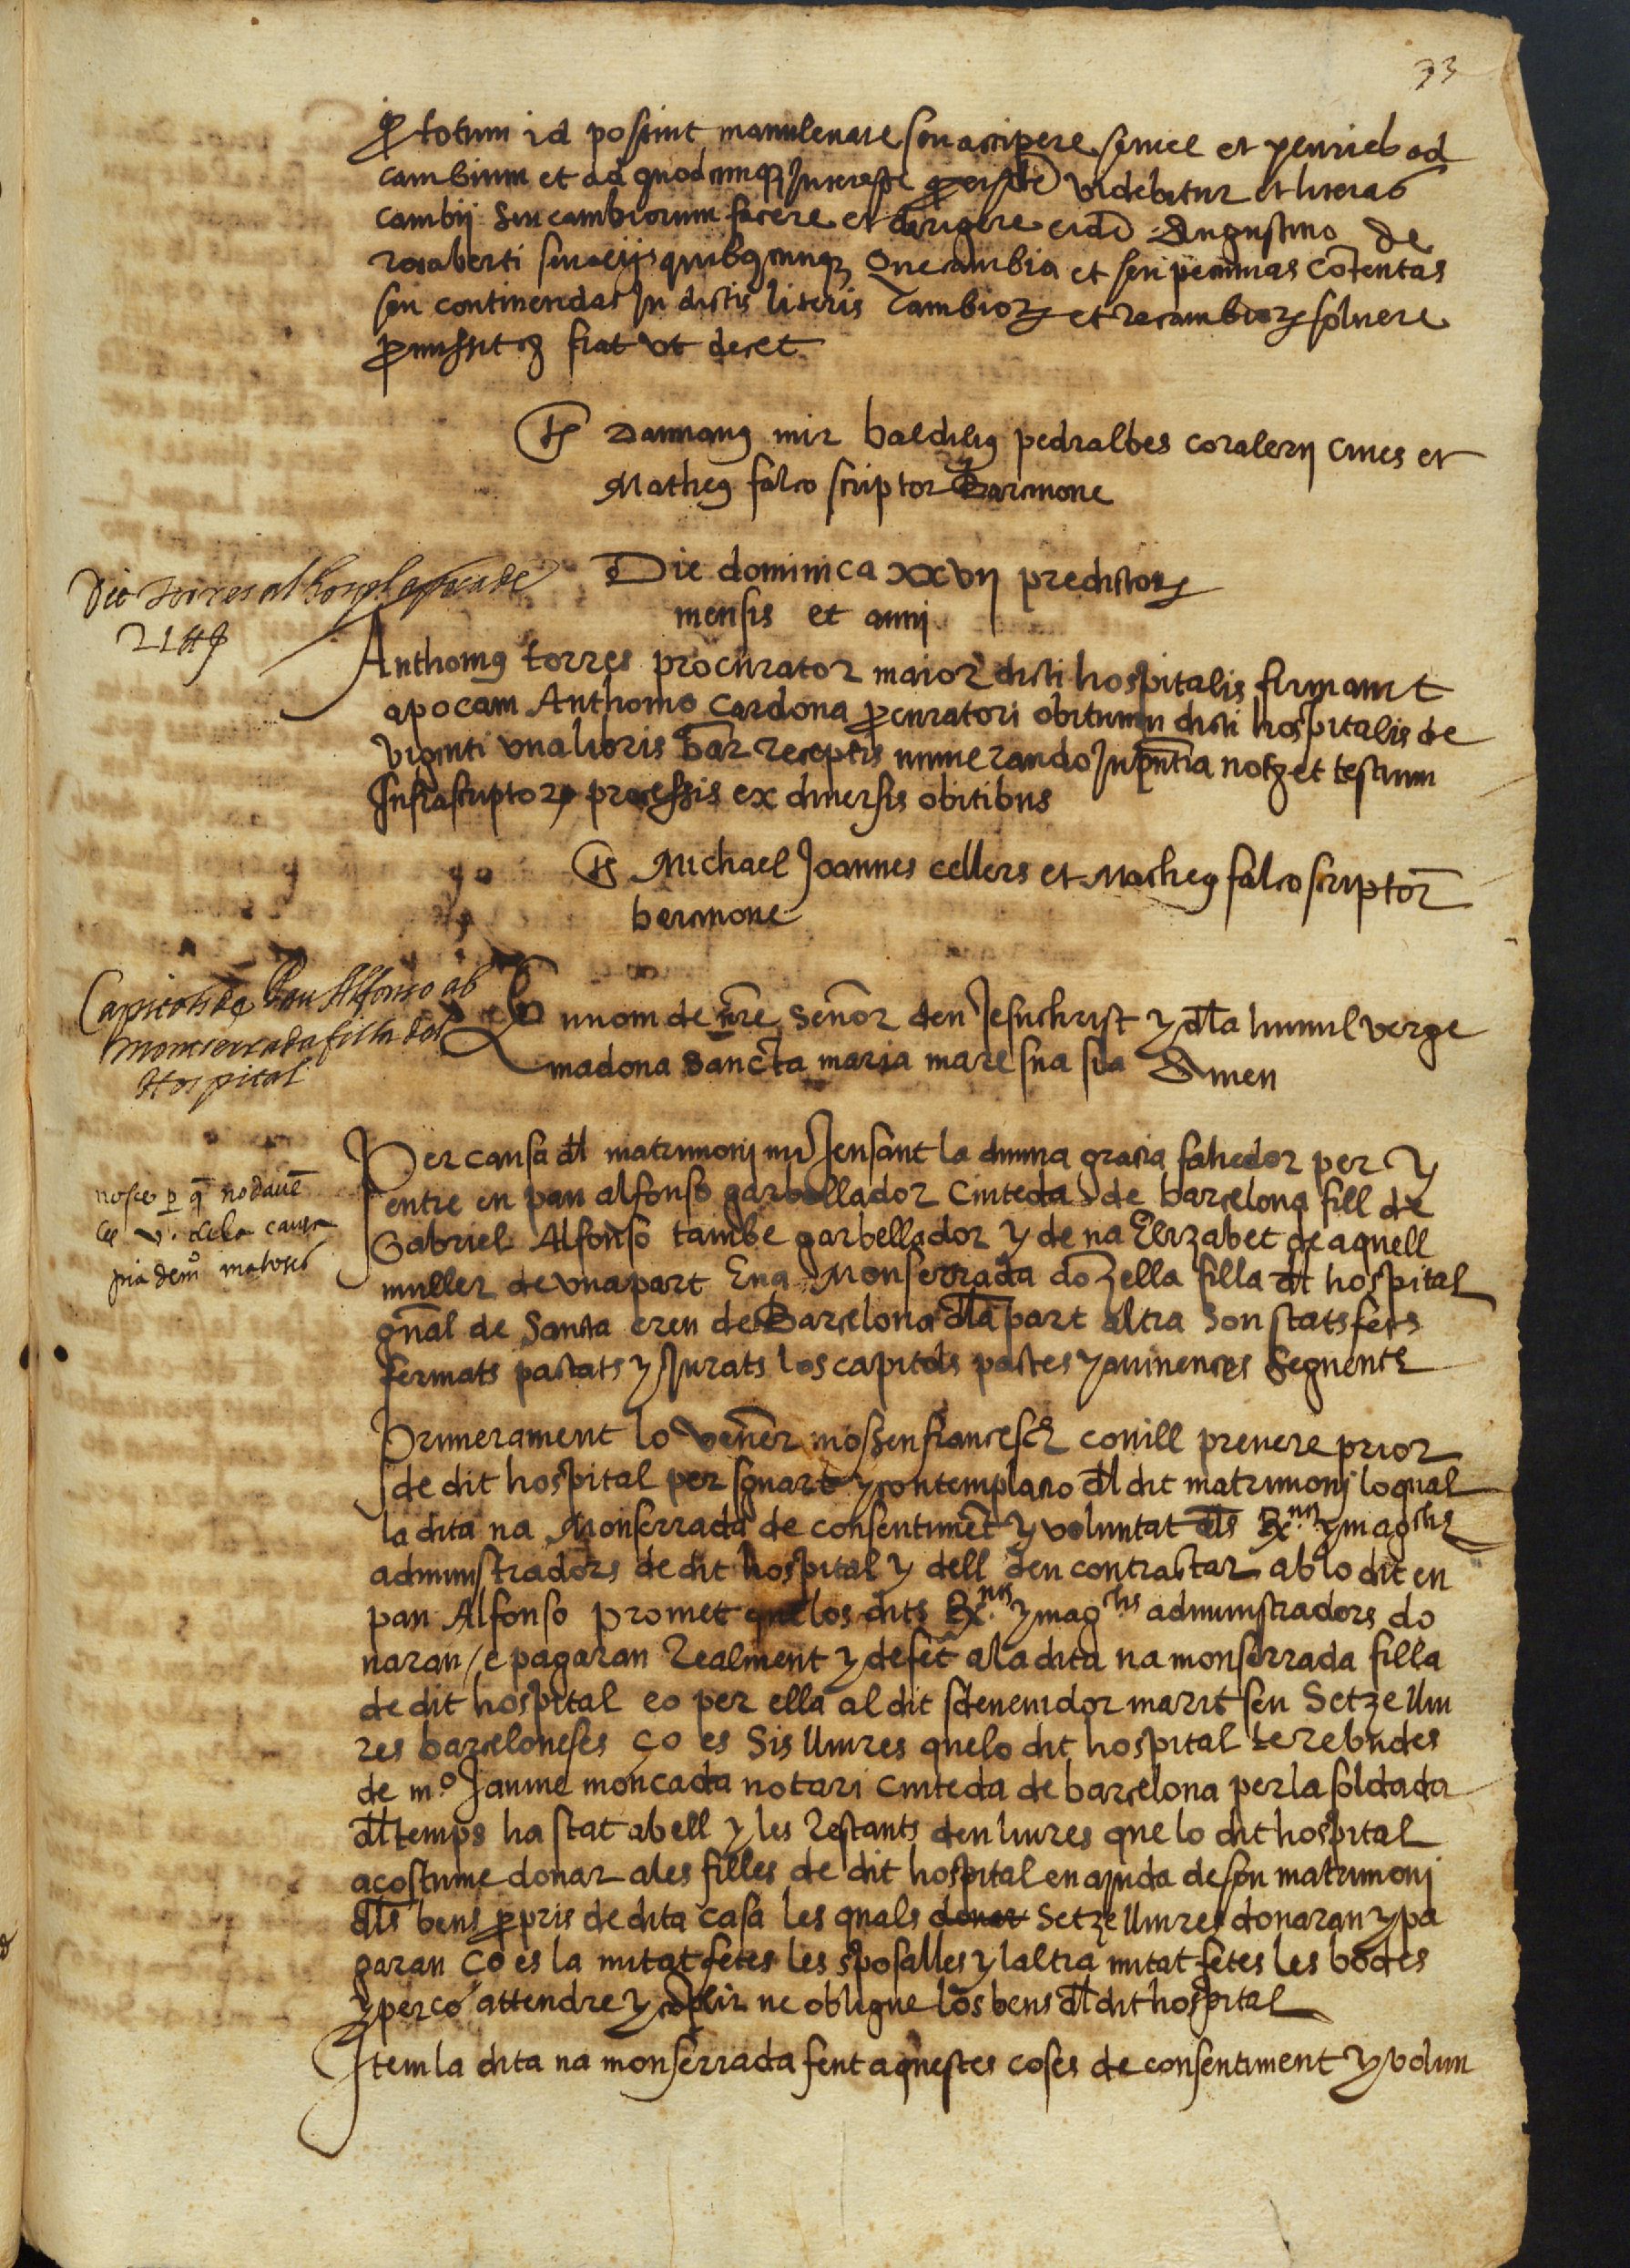 33
p totum id possint manulevare seu accipere semel et pluries ad
cambium et ad quodcunq interesse videbitur et literas
cambij seu cambiorum facere et dirigere eidē Augustino de
rocaberti seu aeijs quibuscunq Que cambia et seu peccunias cōtentas
seu continendas In dictis literis Cambior et recambior solvere
promissit fiat ut decet
Ts Damianus mir baldirius pedralbes coralerij cives et
Matheus falco scriptor Barcinone
Die dominica xxvij predictor
mensis et anni
Dit torres al hospl apoca de
21 ₶
Anthonius torres procurator maior dicti hospitalis firmavit
apocam Anthonio Cardona procuratori obituum dicti hospitalis de
viginti una libris Bar receptis numerando In pntia not et testium
Infrascriptor processis ex diversis obitibus
Ts Michael Joannes cellers et Matheus falco scriptor
barcinone
Capitols de Pau Alfonso ab
monserrada filla del
Hospital
En nom de nre Senor deu Jesuchrist y dla humil verge
madona Sancta maria mare sua sia Amen
Per causa dl matrimoni mijensant la divina gracia fahedor per y
entre en pau alfonso garbellador Ciuteda de barcelona fill de
Gabriel Alfonso tambe garbellador y de na Elizabet de aquell
muller de una part E na Monserrada donzella filla dl hospital
gnal de Santa creu de Barcelona dla part altra Son stats fets
fermats pactats y Jurats los capitols pactes y avinences Seguents
no se p q no dave
les v. de la causa
pia dem matoses
Primerament lo Vener mossen francesch conill prevere prior
de dit hospital per sguart y contemplacio dl dit matrimoni lo qual
la dita na Monserrada de consentimēt y voluntat dls Rx.nts y magchs
administradors de dit hospital y dell deu contractar ab lo dit en
pau Alfonso Promet que los dits Rx.nts y magchs administradors do
naran / e pagaran Realment y de fet a la dita na monserrada filla
de dit hospital eo per ella al dit sdevenidor marit seu Setze lliu
res barceloneses ço es Sis lliures que lo dit hospital te rebudes
de mº Jaume moncada notari Ciuteda de barcelona per la soldada
dl temps ha stat ab ell y les Restants deu liures que lo dit hospital
acostume donar a les filles de dit hospital en ajuda de son matrimoni
dls bens propris de dita casa les quals donar Setze lliures donaran y pa
garan ço es la mitat fetes les sposalles y laltra mitat fetes les bodes
y per ço attendre y complir ne obligue los bens dl dit hospital
Item la dita na monserrada fent aquestes coses de consentiment y volun